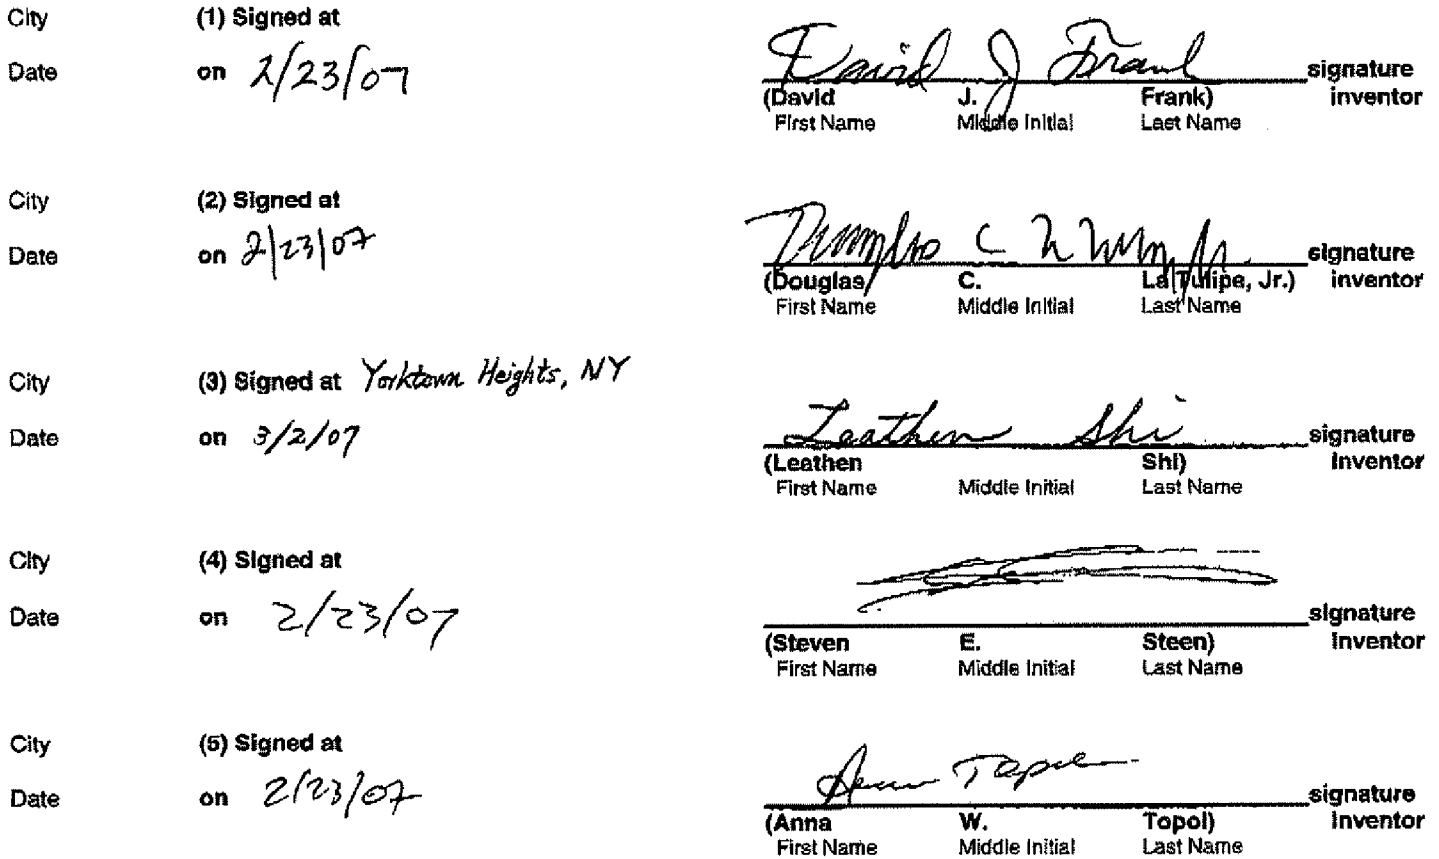 City (1) Signed at
Date on 2/23/07 David J Frank signature
(David J. Frank) inventor
First Name Middle Initial Last Name
City (2) Signed at
Date on 2/23/07 signature
(Douglas C. La Tulipe, Jr.) inventor
First Name Middle Initial Last Name
City (3) Signed at Yorktown Heights, NY
Date on 3/2/07 Leathen Shi signature
(Leathen Shi) inventor
First Name Middle Initial Last Name
City (4) Signed at
Date on 2/23/07 signature
(Steven E. Steen) inventor
First Name Middle Initial Last Name
City (5) Signed at
Date on 2/23/07 Anna Topol signature
(Anna W. Topol) inventor
First Name Middle Initial Last Name